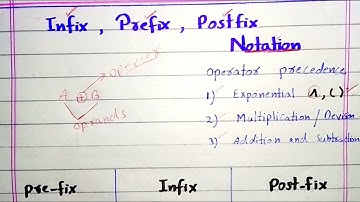 Infix , Prefix , Postfix
Notation
operater
A + B
oprands
Operator precedence
1) Exponential ^, ( )
2) Multiplication / Devision
3) Addition and Subtraction
pre-fix Infix Post-fix